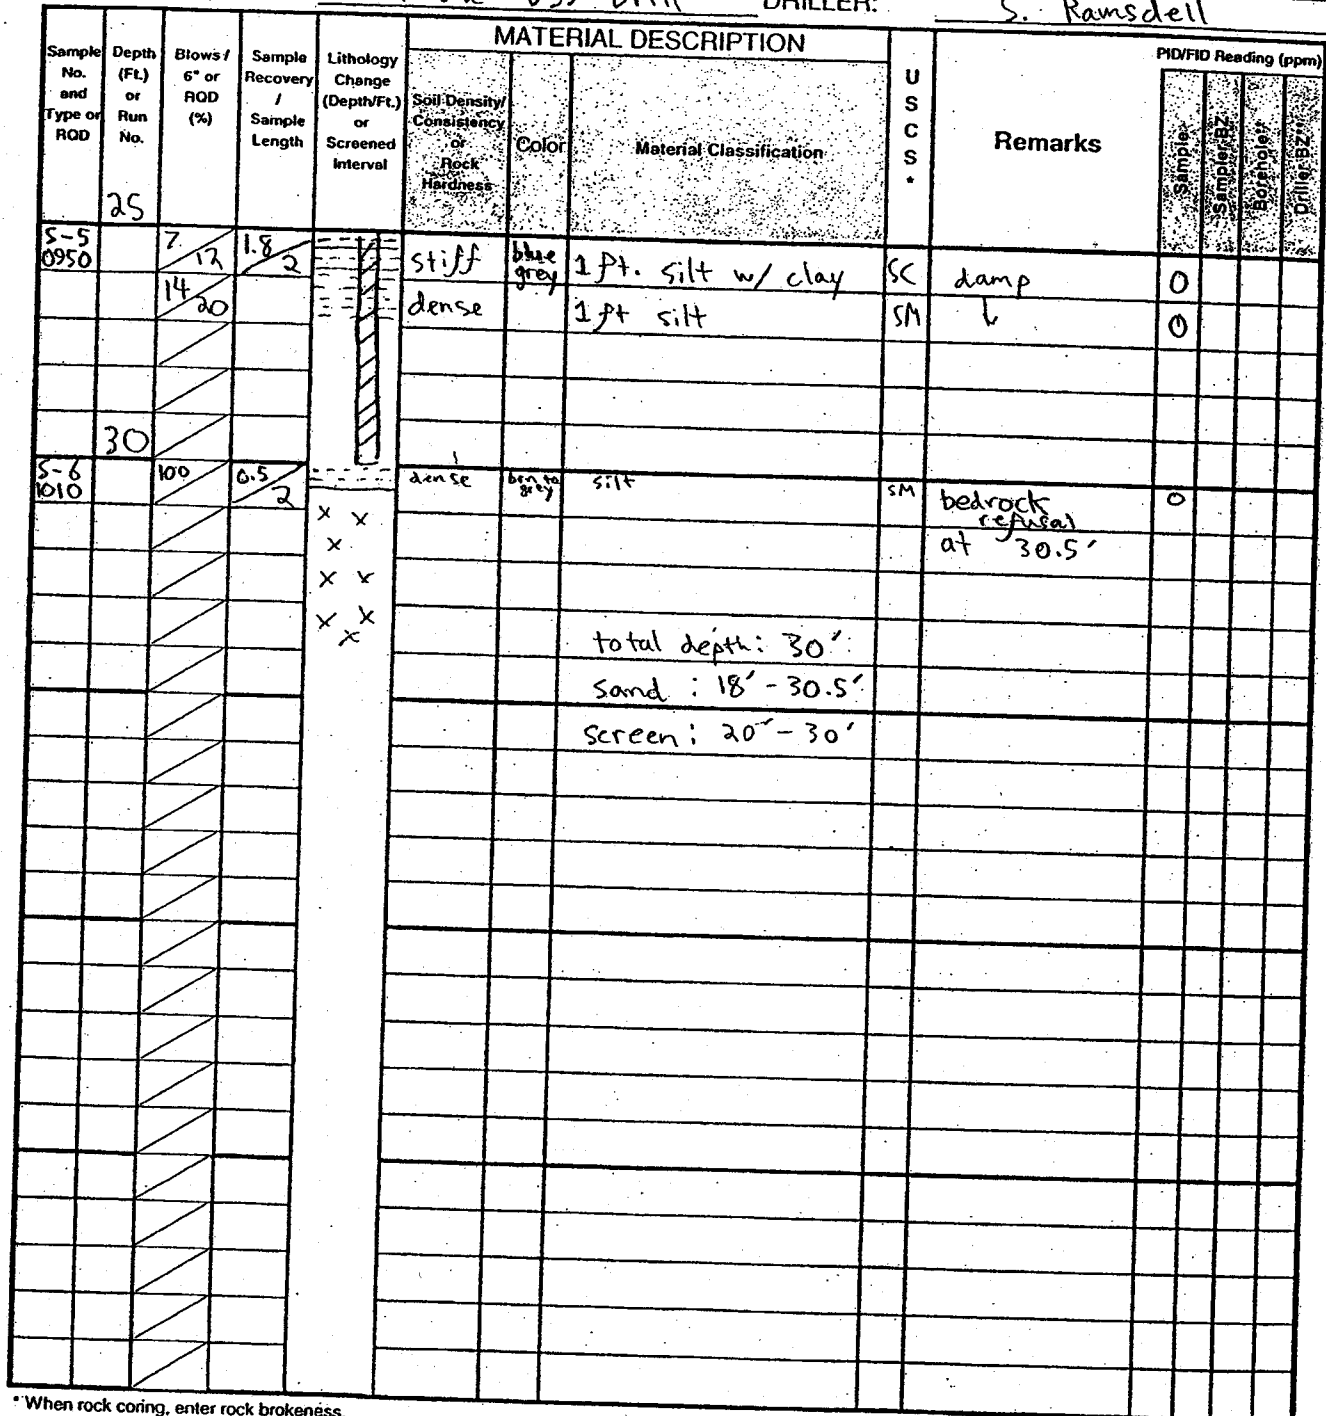 Drill DRILLER: S. Ramsdell
MATERIAL DESCRIPTION
PID/FID Reading (ppm)
Sample No. and Type or RQD
Depth (Ft.) or Run No.
Blows / 6" or RQD (%)
Sample Recovery / Sample Length
Lithology Change (Depth/Ft.) or Screened Interval
Soil Density/ Consistency or Rock Hardness
Color
Material Classification
U S C S *
Remarks
Sample
Sampler BZ
Borehole**
Driller BZ**
25
S-5 0950 7/12 1.8/2 stiff blue grey 1 ft. silt w/ clay SC damp 0
14/20 dense 1 ft silt SM ↓ 0
30
S-6 1010 100 0.5/2 dense brn to grey silt SM bedrock 0
refusal
at 30.5'
total depth: 30'
sand : 18' - 30.5'
screen : 20' - 30'
* When rock coring, enter rock brokeness.